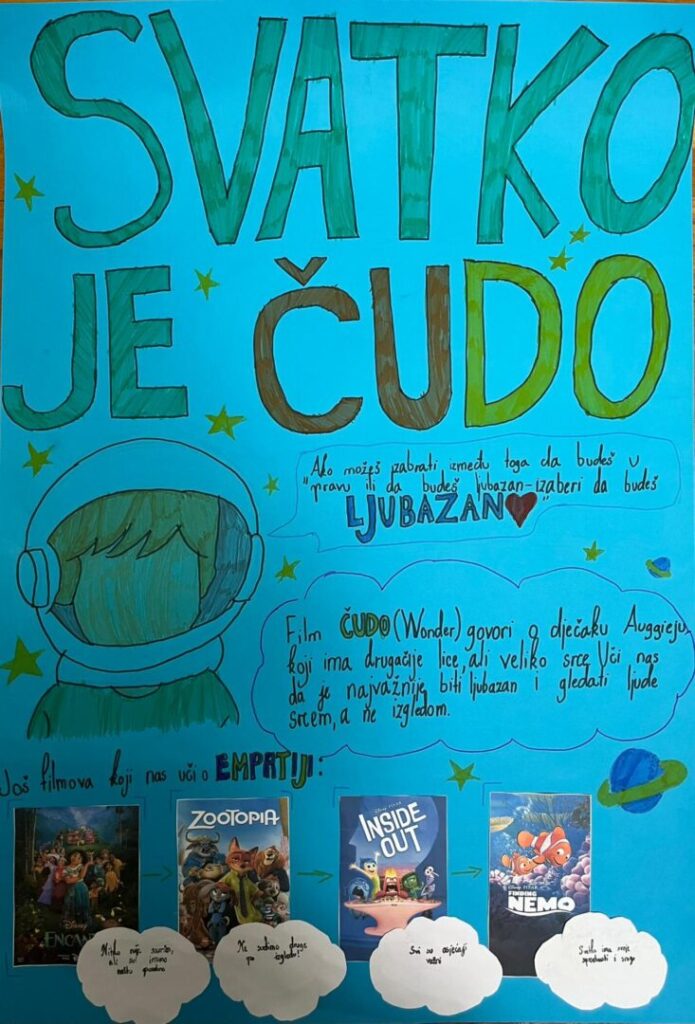 SVATKO
JE ČUDO
"Ako možeš izabrati između toga da budeš u
pravu ili da budeš ljubazan-izaberi da budeš
LJUBAZAN"
Film ČUDO (Wonder) govori o dječaku Auggieju,
koji ima drugačije lice, ali veliko srce. Uči nas
da je najvažnije biti ljubazan i gledati ljude
srcem, a ne izgledom.
Još filmova koji nas uči o EMPATIJI:
Disney
ENCAN
ZOOTOPIA
DISNEY PIXAR
INSIDE
OUT
DISNEY PIXAR
FINDING
NEMO
Nitko nije savršen,
ali svi imamo
nešto posebno
Ne sudimo druge
po izgledu!
Svi su osjećaji
važni
Svatko ima svoje
sposobnosti i snage